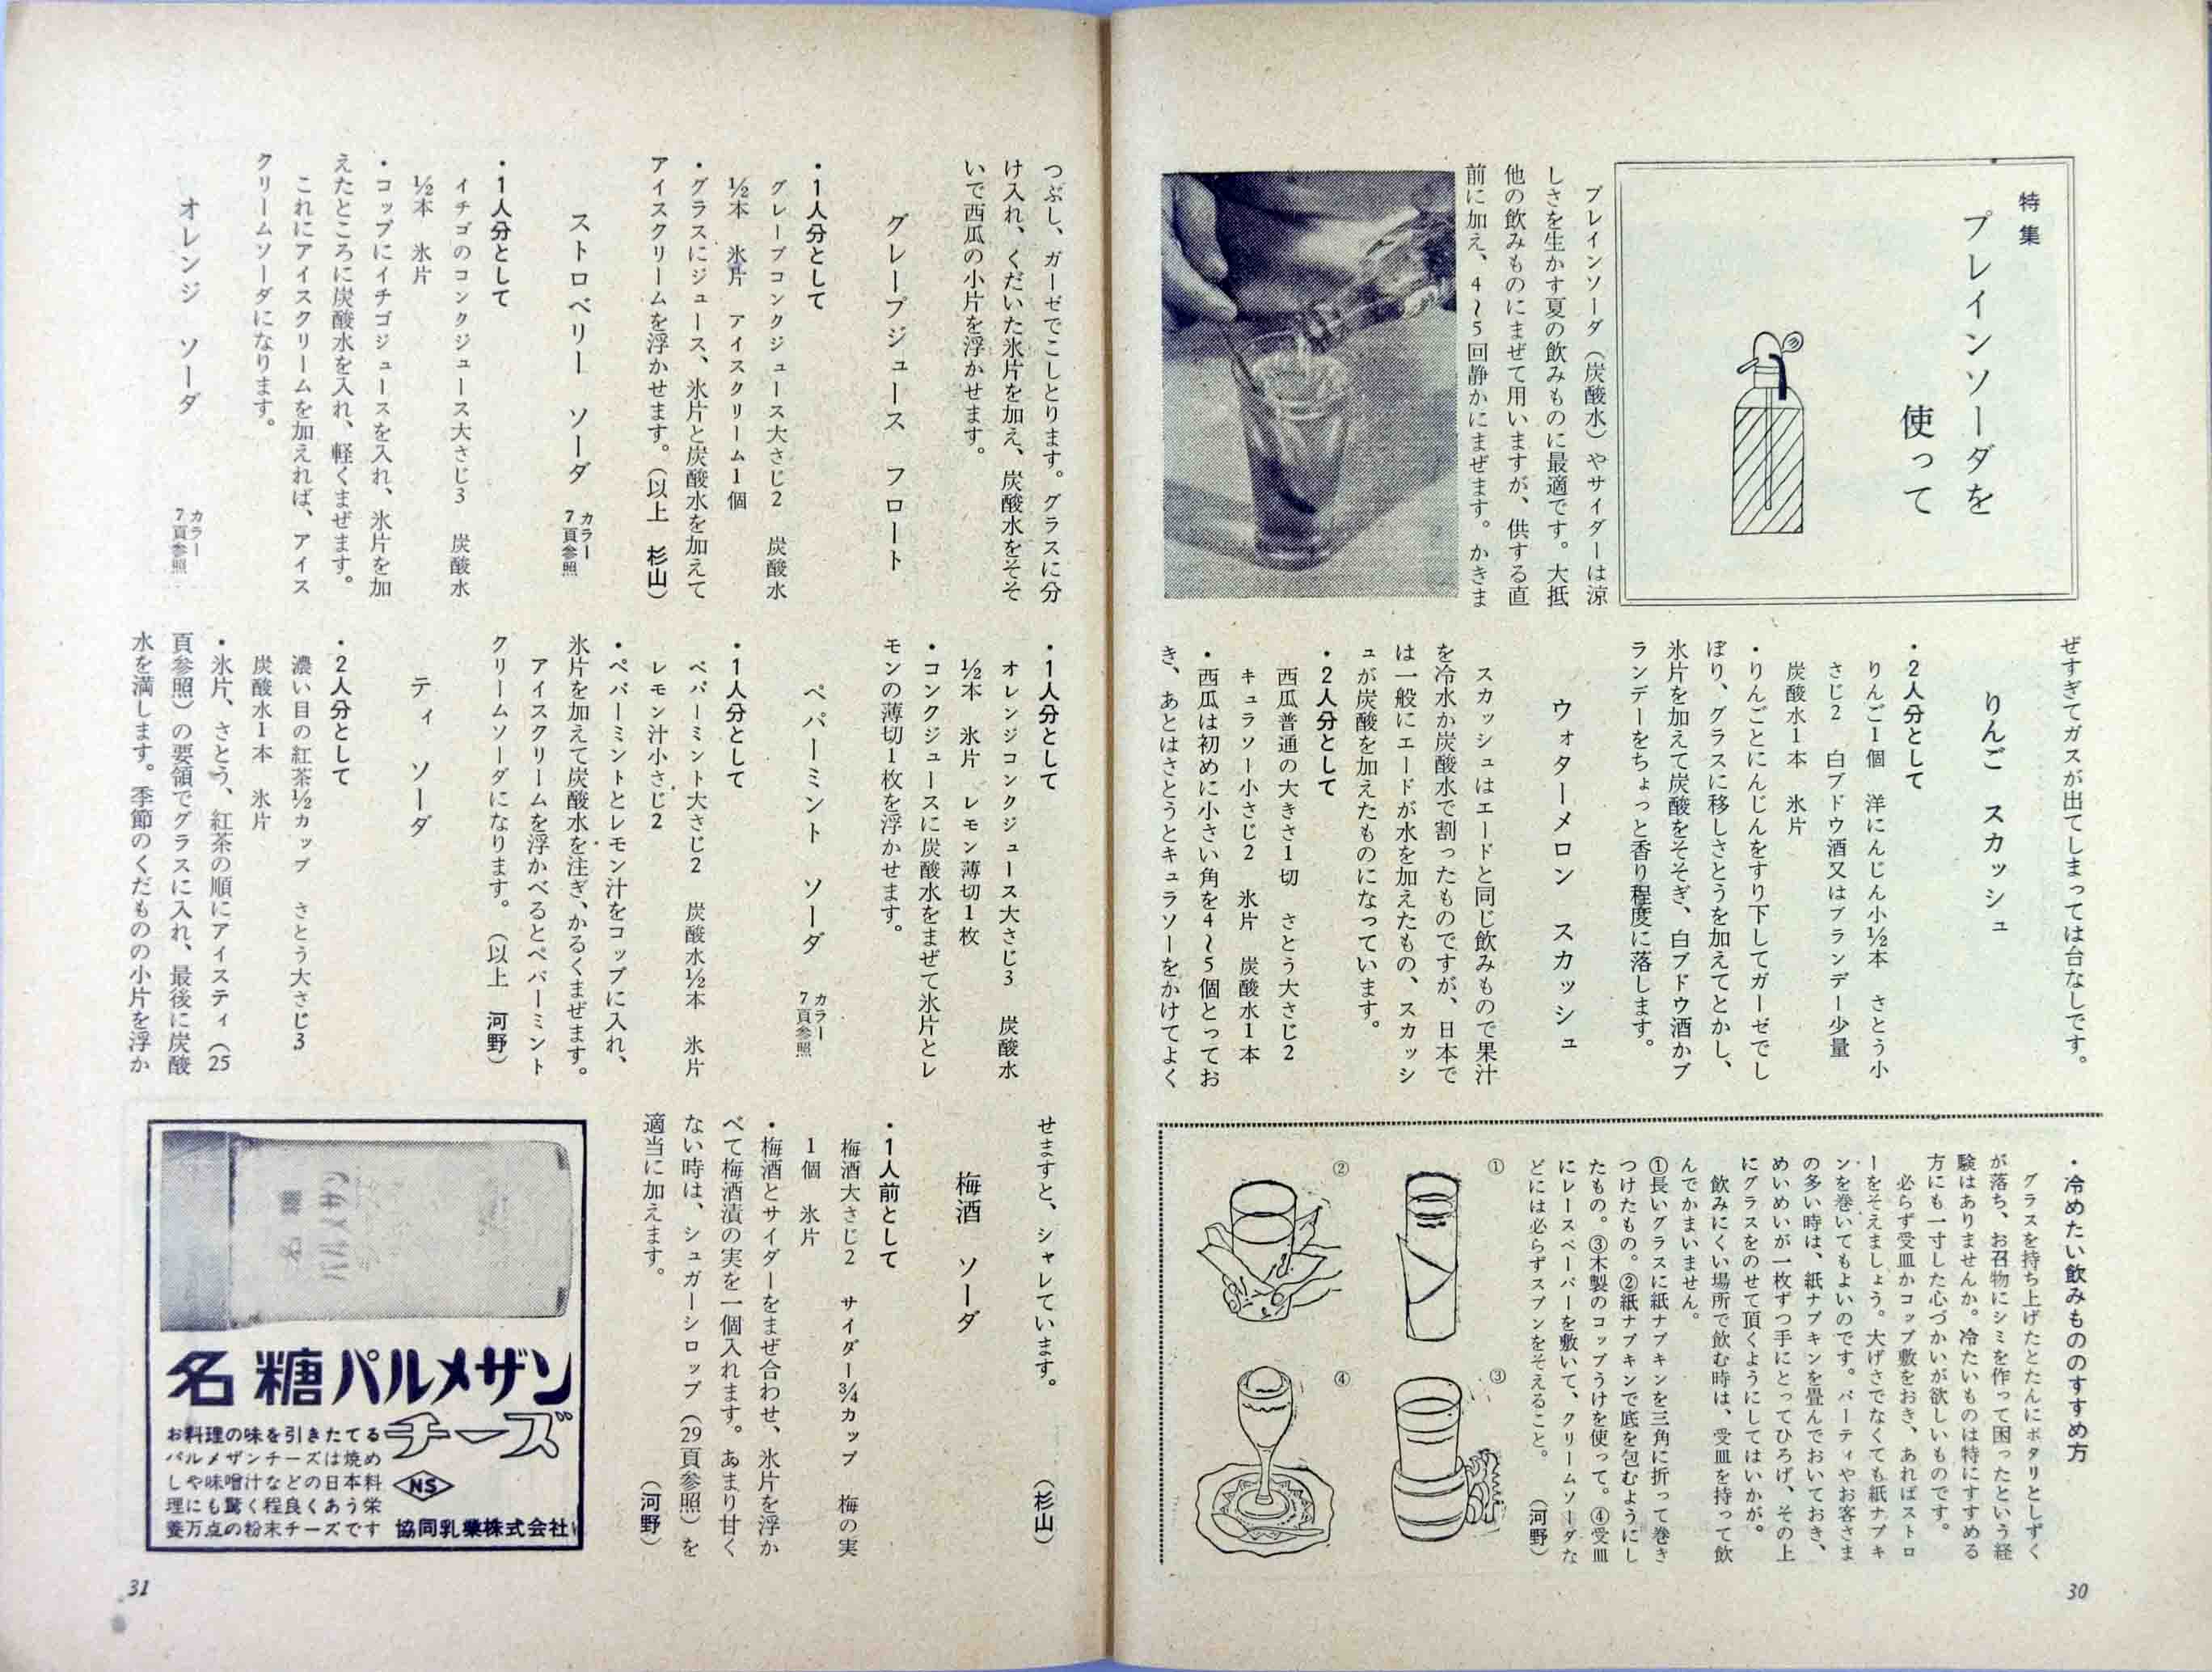 特集
プレインソーダを
使って
プレインソーダ（炭酸水）やサイダーは涼
しさを生かす夏の飲みものに最適です。大抵
他の飲みものにまぜて用いますが、供する直
前に加え、4〜5回静かにまぜます。かきま
ぜすぎてガスが出てしまっては台なしです。
りんご　スカッシュ
・2人分として
りんご1個　洋にんじん小½本　さとう小
さじ2　白ブドウ酒又はブランデー少量
炭酸水1本　氷片
・りんごとにんじんをすり下してガーゼでし
ぼり、グラスに移しさとうを加えてとかし、
氷片を加えて炭酸をそそぎ、白ブドウ酒かブ
ランデーをちょっと香り程度に落します。
ウォターメロン　スカッシュ
スカッシュはエードと同じ飲みもので果汁
を冷水か炭酸水で割ったものですが、日本で
は一般にエードが水を加えたもの、スカッシ
ュが炭酸を加えたものになっています。
・2人分として
西瓜普通の大きさ1切　さとう大さじ2
キュラソー小さじ2　氷片　炭酸水1本
・西瓜は初めに小さい角を4〜5個とってお
き、あとはさとうとキュラソーをかけてよく
・冷めたい飲みもののすすめ方
グラスを持ち上げたとたんにポタリとしずく
が落ち、お召物にシミを作って困ったという経
験はありませんか。冷たいものは特にすすめる
方にも一寸した心づかいが欲しいものです。
必らず受皿かコップ敷をおき、あればストロ
ーをそえましょう。大げさでなくても紙ナプキ
ンを巻いてもよいのです。パーティやお客さま
の多い時は、紙ナプキンを畳んでおいておき、
めいめいが一枚ずつ手にとってひろげ、その上
にグラスをのせて頂くようにしてはいかが。
飲みにくい場所で飲む時は、受皿を持って飲
んでかまいません。
①長いグラスに紙ナプキンを三角に折って巻き
つけたもの。②紙ナプキンで底を包むようにし
たもの。③木製のコップうけを使って。④受皿
にレースペーパーを敷いて、クリームソーダな
どには必らずスプンをそえること。（河野）
①
②
③
④
30
つぶし、ガーゼでこしとります。グラスに分
け入れ、くだいた氷片を加え、炭酸水をそそ
いで西瓜の小片を浮かせます。
グレープジュース　フロート
・1人分として
グレープコンクジュース大さじ2　炭酸水
½本　氷片　アイスクリーム1個
・グラスにジュース、氷片と炭酸水を加えて
アイスクリームを浮かせます。（以上　杉山）
ストロベリー　ソーダ　カラー7頁参照
・1人分として
イチゴのコンクジュース大さじ3　炭酸水
½本　氷片
・コップにイチゴジュースを入れ、氷片を加
えたところに炭酸水を入れ、軽くまぜます。
これにアイスクリームを加えれば、アイス
クリームソーダになります。
オレンジ　ソーダ　カラー7頁参照
・1人分として
オレンジコンクジュース大さじ3　炭酸水
½本　氷片　レモン薄切1枚
・コンクジュースに炭酸水をまぜて氷片とレ
モンの薄切1枚を浮かせます。
ペパーミント　ソーダ　カラー7頁参照
・1人分として
ペパーミント大さじ2　炭酸水½本　氷片
レモン汁小さじ2
・ペパーミントとレモン汁をコップに入れ、
氷片を加えて炭酸水を注ぎ、かるくまぜます。
アイスクリームを浮かべるとペパーミント
クリームソーダになります。（以上　河野）
ティ　ソーダ
・2人分として
濃い目の紅茶½カップ　さとう大さじ3
炭酸水1本　氷片
・氷片、さとう、紅茶の順にアイスティ（25
頁参照）の要領でグラスに入れ、最後に炭酸
水を満します。季節のくだものの小片を浮か
せますと、シャレています。（杉山）
梅酒　ソーダ
・1人前として
梅酒大さじ2　サイダー¾カップ　梅の実
1個　氷片
・梅酒とサイダーをまぜ合わせ、氷片を浮か
べて梅酒漬の実を一個入れます。あまり甘く
ない時は、シュガーシロップ（29頁参照）を
適当に加えます。（河野）
名糖
パルメザン
名糖パルメザン
チーズ
お料理の味を引きたてる
パルメザンチーズは焼め
しや味噌汁などの日本料
理にも驚く程良くあう栄
養万点の粉末チーズです
NS
協同乳業株式会社
31